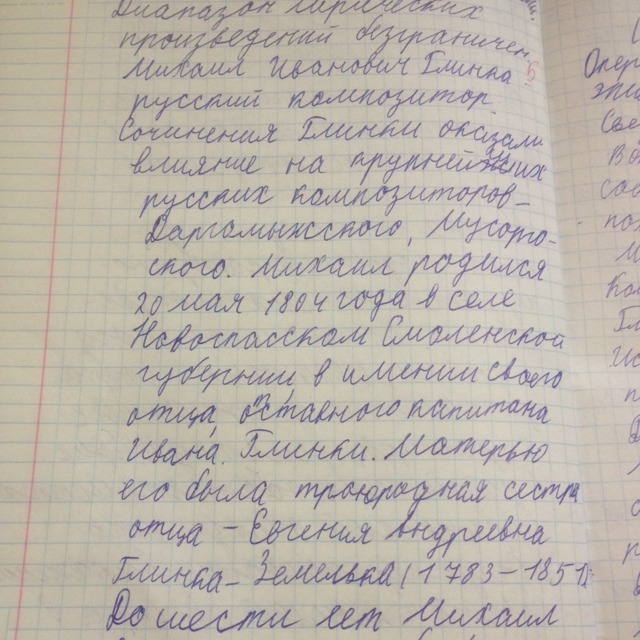 Диапазон лирических
произведений безграничен
Михаил Иванович Глинка
русский композитор
Сочинения Глинки оказали
влияние на крупнейших
русских композиторов-
Даргамыжского, Мусорго-
ского. Михаил родился
20 мая 1804 года в селе
Новоспасском Смоленской
губернии в имении своего
отца, отставного капитана
Ивана. Глинки. Матерью
его была троюродная сестра
отца - Евгения Андреевна
Глинка-Земелька (1783-1851).
До шести лет Михаил
Опер
эпи
Све